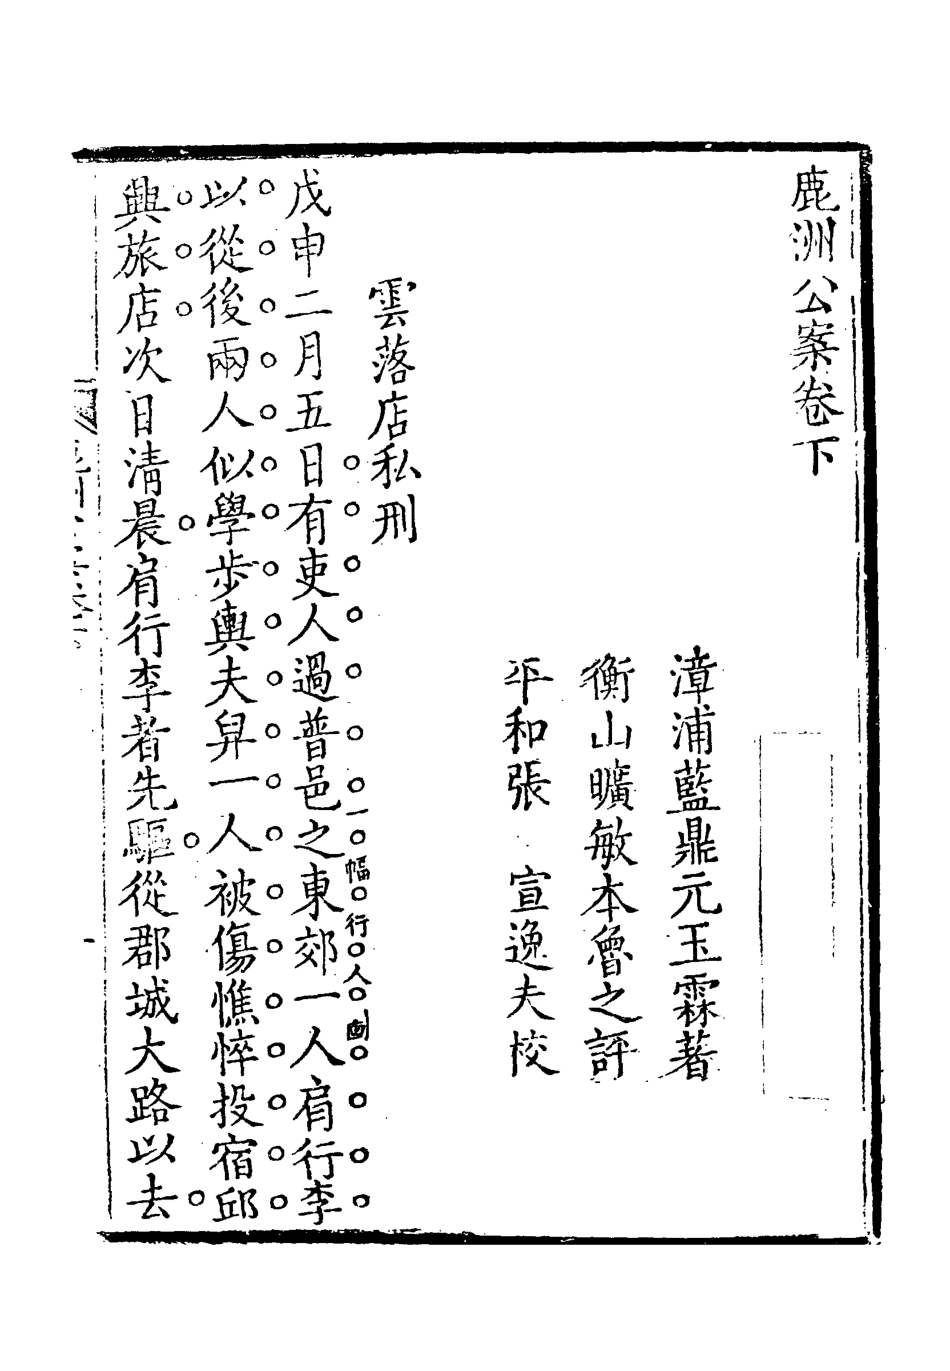 鹿洲公案卷下
漳浦藍鼎元玉霖著
衡山曠敏本魯之評
平和張　宣逸夫校
雲落店私刑
戊申二月五日有吏人過普邑之東郊一人肩行李
一幅行人圖
以從後兩人似學步輿夫舁一人被傷憔悴投宿邱
興旅店次日清晨肩行李者先驅從郡城大路以去